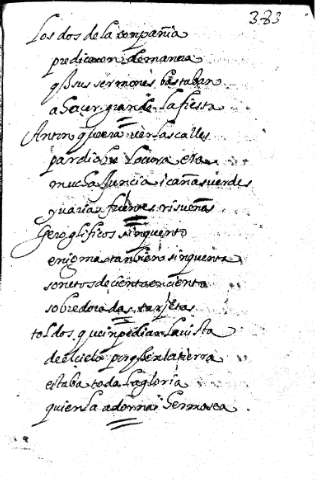 383
Los dos de la conpañia
predicaron de manera
q sus sermones bastaban
a haçer grande la fiesta
Anton quisiera ver las calles
par dios locura era
mucha juncia i cañas verdes
y varias fuentes risueñas
Geroglificos sinquento
enigmas tanbien sinquenta
sonetos de cientoen ciento
sobre doradas tarjetas
toldos que inpedian la vista
de el cielo porq en la tierra
estaba toda la gloria
quien la adorna i hermosea